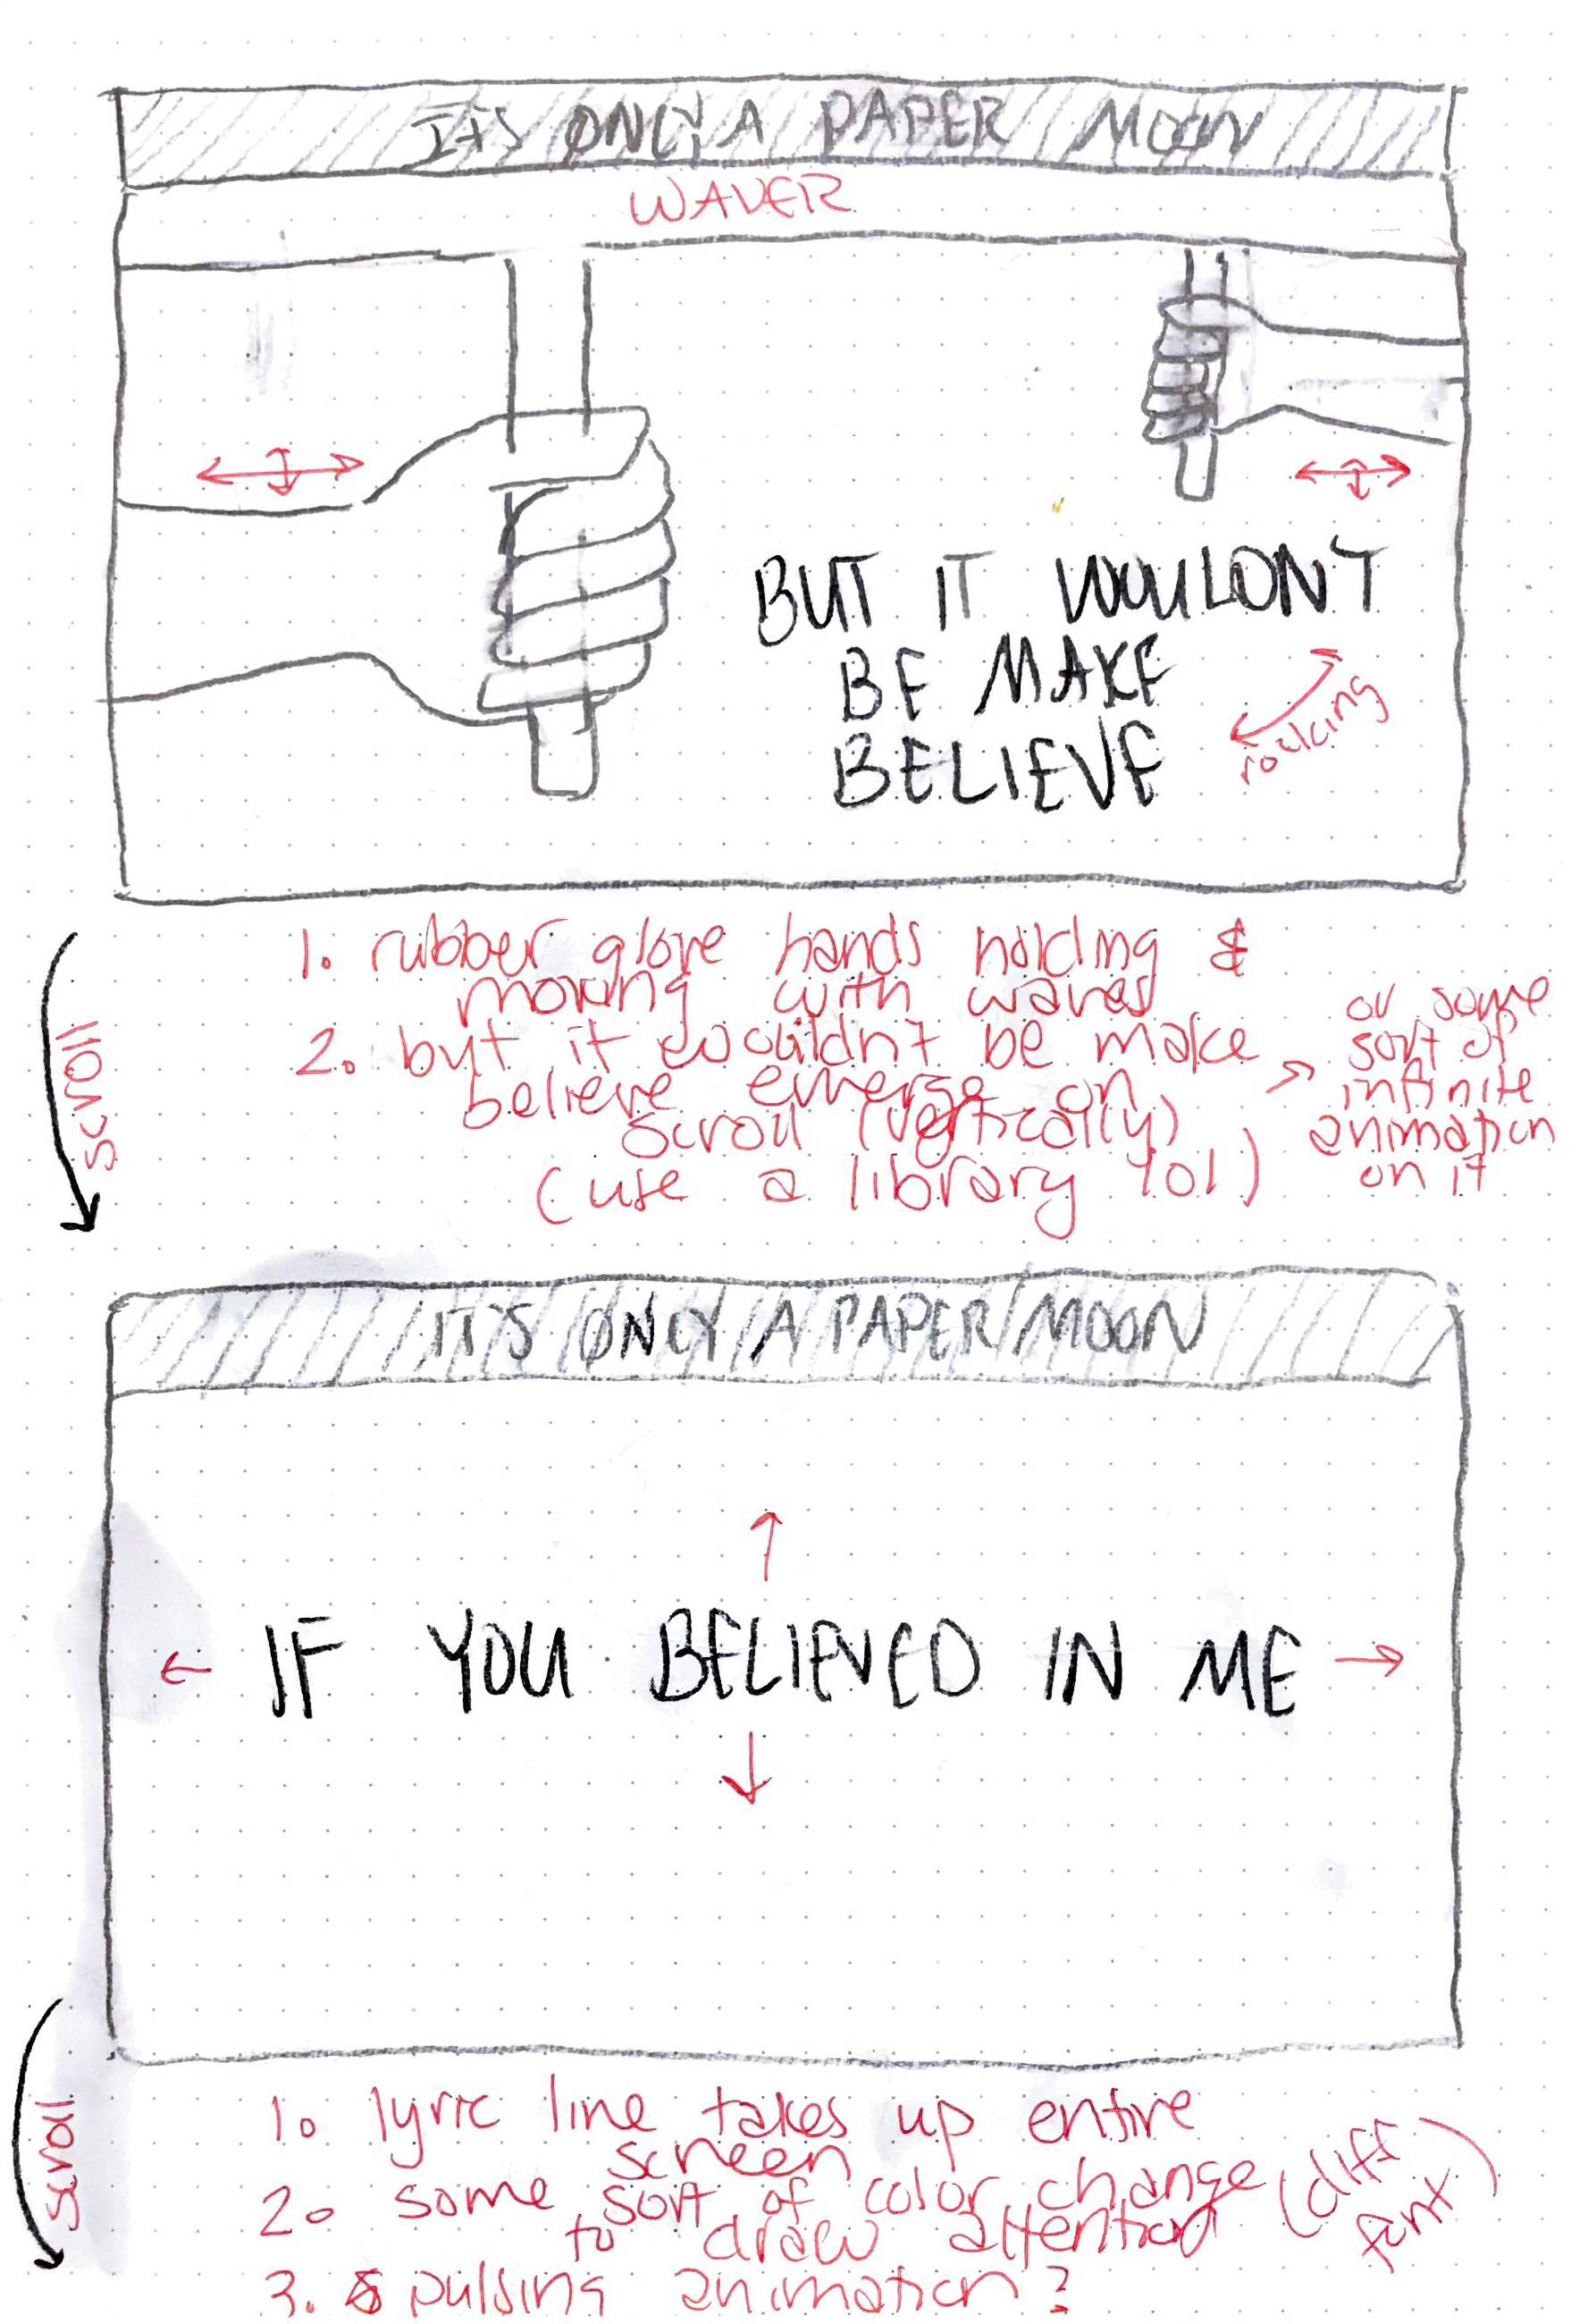 ITS ONLY A PAPER MOON
WAVER
BUT IT WOULDNT
BE MAKE
BELIEVE
rocking
1. rubber glove hands holding &
moving with waves
2. but it wouldn't be make
believe emerge on
scroll (vertically)
(use a library lol)
or some
sort of
infinite
animation
on it
scroll
IT'S ONLY A PAPER MOON
IF YOU BELIEVED IN ME
scroll
1. lyric line takes up entire
screen
2. some sort of color change
to draw attention
(diff
font)
3. pulsing animation?